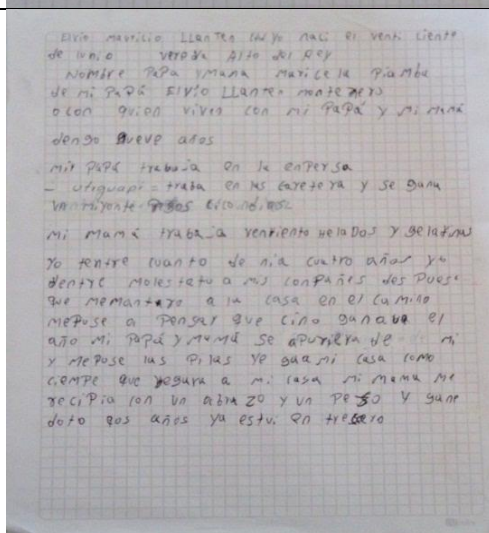 Elvio mauricio LLanten yo naci el venti siente
de junio vereda Alto del Rey
Nombre PaPa y Mama Maricela Piamba
de mi PaPá Elvio LLanten montenero
o con quien vives con mi PaPá y Mi mamá
dengo nueve años
mis PaPá trabaja en la enpersa
traba en las caretera y se gana
Mi Mamá trabaja ventiento Helados y gelatinas
Yo tentre cuanto de nia cuatro años yo
dentre molestato a mis conpañes des Pues
que me mantaro a la casa en el camino
mepose a Pensar que cino ganava el
año mi PaPá y mamá se apuriera de mi
y mepose las Pilas ye gaa mi casa como
ciempe que yegara a mi casa mi mama me
recipia con un abrazo y un Peso y gane
doto gos años ya estvi en tresero